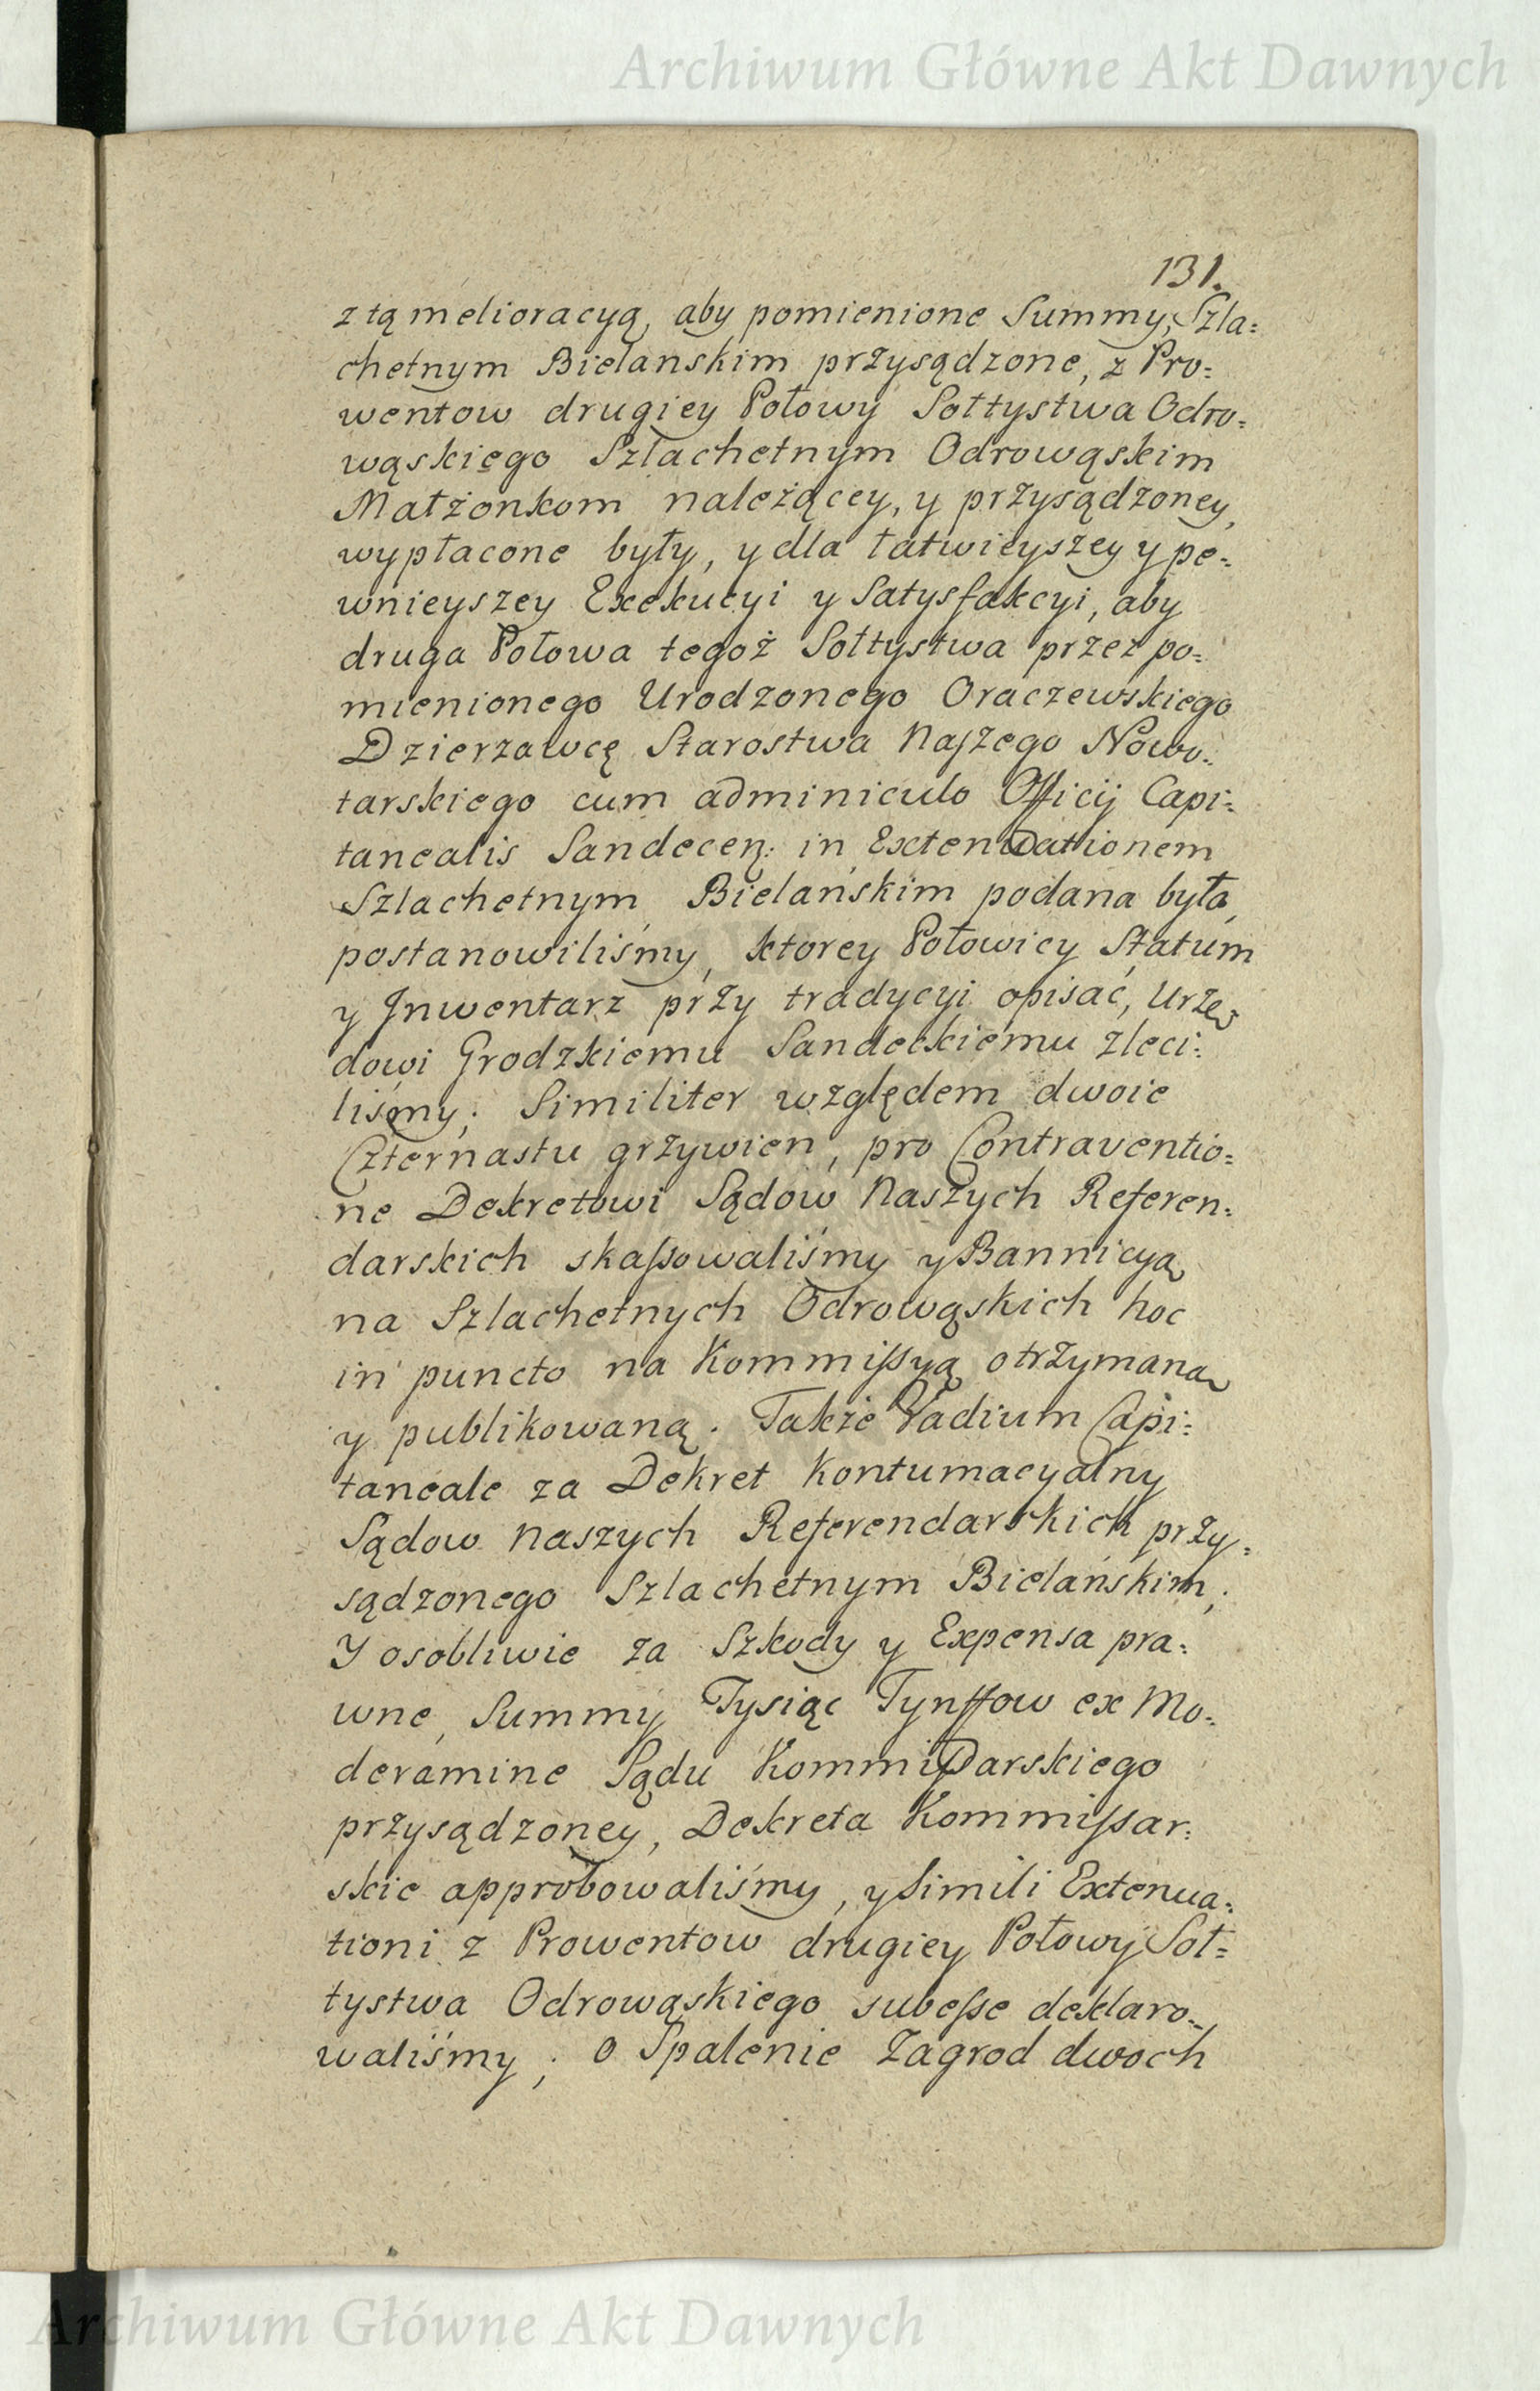 Archiwum Główne Akt Dawnych
131.
z tą melioracyą, aby pomienione Summy, Szla=
chetnym Bielanskim przysądzone, z Pro=
wentow drugiey Połowy Sołtystwa Odro=
wąskiego Szlachetnym Odrowąskim
Małżonkom należącey, y przysądzoney,
wypłacone były, y dla łatwieyszey y pe=
wnieyszey Exekucyi y Satysfakcyi, aby
druga Połowa tegoż Sołtystwa przez po=
mienionego Urodzonego Oraczewskiego
Dzierzawcę Starostwa Naſzego Nowo=
tarskiego cum adminiculo Officij Capi=
tanealis Sandecen: in Extenuationem
Szlachetnym Bielańskim podana była,
postanowiliśmy, ktorey Połowicy Statum
y Inwentarz przy tradycyi opisać, Urzę
dowi Grodzkiemu Sandeckiemu zleci=
liśmy; Similiter względem dwoie
Czternastu grzywien, pro Contraventio=
ne Dekretowi Sądow Naszych Referen=
darskich skaſsowaliśmy y Bannicyą
na Szlachetnych Odrowąskich hoc
in puncto na Kommiſsyą otrzymaną
y publikowaną. Także Vadium Capi=
taneale za Dekret Kontumacyalny
Sądow naszych Referendarskich przy=
sądzonego Szlachetnym Bielańskim;
Y osobliwie za Szkody y Expensa pra=
wne, Summy Tysiąc Tynffow ex Mo=
deramine Sądu Kommiſsarskiego
przysądzoney, Dekreta Kommiſsar=
skie approbowaliśmy, y Simili Extenua=
tioni z Prowentow drugiey Połowy Soł=
tystwa Odrowąskiego subeſse deklaro=
waliśmy; O Spalenie Zagrod dwoch
Archiwum Główne Akt Dawnych